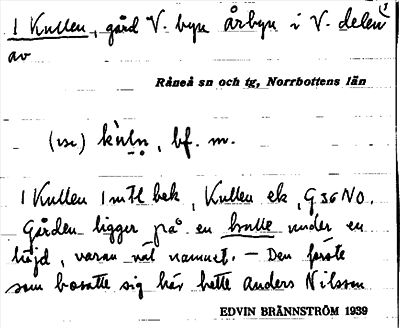 1 Kullen, gård V. byn Årbyn i V. delen
av
Råneå sn och tg, Norrbottens län
bf. m.
1 Kullen 1 mtl bek, Kullen ek, G 36 NO.
Gården ligger på en kulle under en
höjd, varav väl namnet. – Den förste
som bosatte sig här hette Anders Nilsson
EDVIN BRÄNNSTRÖM 1939